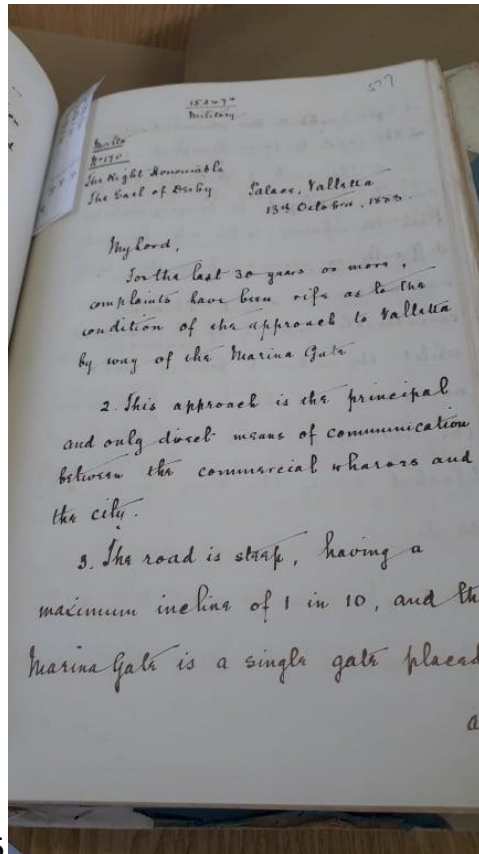 577
15247
Military
Malta
No 170
The Right Honourable
The Earl of Derby
Palace, Valletta
13th October, 1883.
My Lord,
For the last 30 years or more,
complaints have been rife as to the
condition of the approach to Valletta
by way of the Marina Gate
2. This approach is the principal
and only direct means of communication
between the commercial wharves and
the city.
3. The road is steep, having a
maximum incline of 1 in 10, and the
Marina Gate is a single gate placed
a